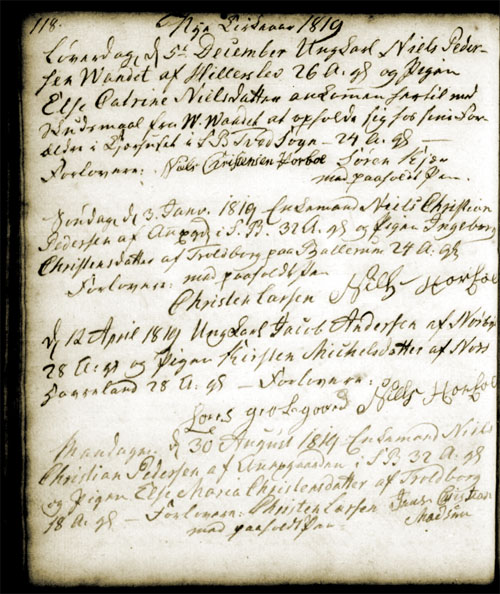 118.
Nye Kirkeaar 1819
Løverdag d 5te December Ungkarl Niels Peder-
sen Wandet af Hillerslev 26 A: gl og Pigen
Else Catrine Nielsdatter ankommen hertil med
Skudsmaal fra W. Wandet at opholde sig hos sine For-
ældre i i S B Tved Sogn - 24 A. gl -
Forlovere: Niels Christensen Horbol Søren
med paaholdt Pen.
Søndag d 3. Janv. 1819 Enkemand Niels Christian
Pedersen af i S. B. 32 A. gl og Pigen Ingeborg
Christensdatter af Troldborg paa Ballerum 24 A: gl
Forlovere: med paaholdt Pen
Christen Larsen Niels Horbol
d 12 April 1819 Ungkarl Jacob Andersen af Nørby
28 A: gl og Pigen Kirsten Michelsdatter af Nors
28 A: gl - Forlovere:
Niels Horbol
Mandagen d 30 August 1819 Enkemand Niels
Christian Pedersen af i S B 32 A. gl
og Pigen Else Maria Christensdatter af Troldborg
18 A. gl - Forlovere: Christen Larsen Jens Christian
med paaholdt Pen. Madsen